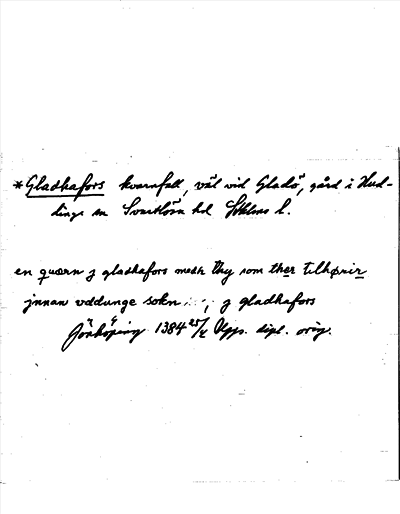 *Gladhafors kvarnfall, väl vid Gladö, gård i Hud-
dinge sn Svartlösa hd Sthlms l.
en quærn j gladhafors mædh thy som ther tilhørir
jnnan vddunge sokn ..., j gladhafors
Jönköping 1384 25/4 Upps. dipl. orig.